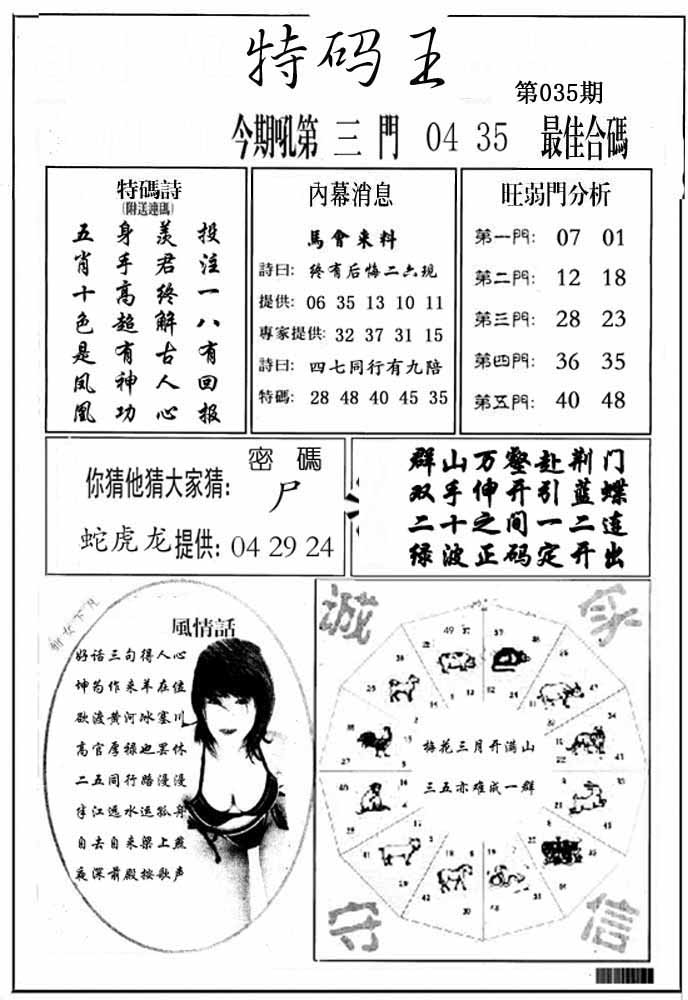 特码王
第035期
今期吼第 三 門 04 35 最佳合碼
特碼詩
(附送連碼)
五身羡投
肖手君注
十高終一
色超解八
是有古有
凤神人回
凰功心报
內幕消息
馬會来料
詩曰: 终有后悔二六现
提供: 06 35 13 10 11
專家提供: 32 37 31 15
詩曰: 四七同行有九陪
特碼: 28 48 40 45 35
旺弱門分析
第一門: 07 01
第二門: 12 18
第三門: 28 23
第四門: 36 35
第五門: 40 48
密碼
你猜他猜大家猜: 尸
蛇虎龙提供: 04 29 24
群山万壑赴荆门
双手伸开引蓝蝶
二十之间一二连
绿波正码定开出
仙女下凡
風情話
好话三句得人心
坤为作来羊在位
欲渡黄河冰塞川
高官厚禄也罢休
二五同行路漫漫
自去自来梁上燕
夜深前殿按歌声
诚
家
49 37
梅花三月开满山
三五亦难成一群
守
信